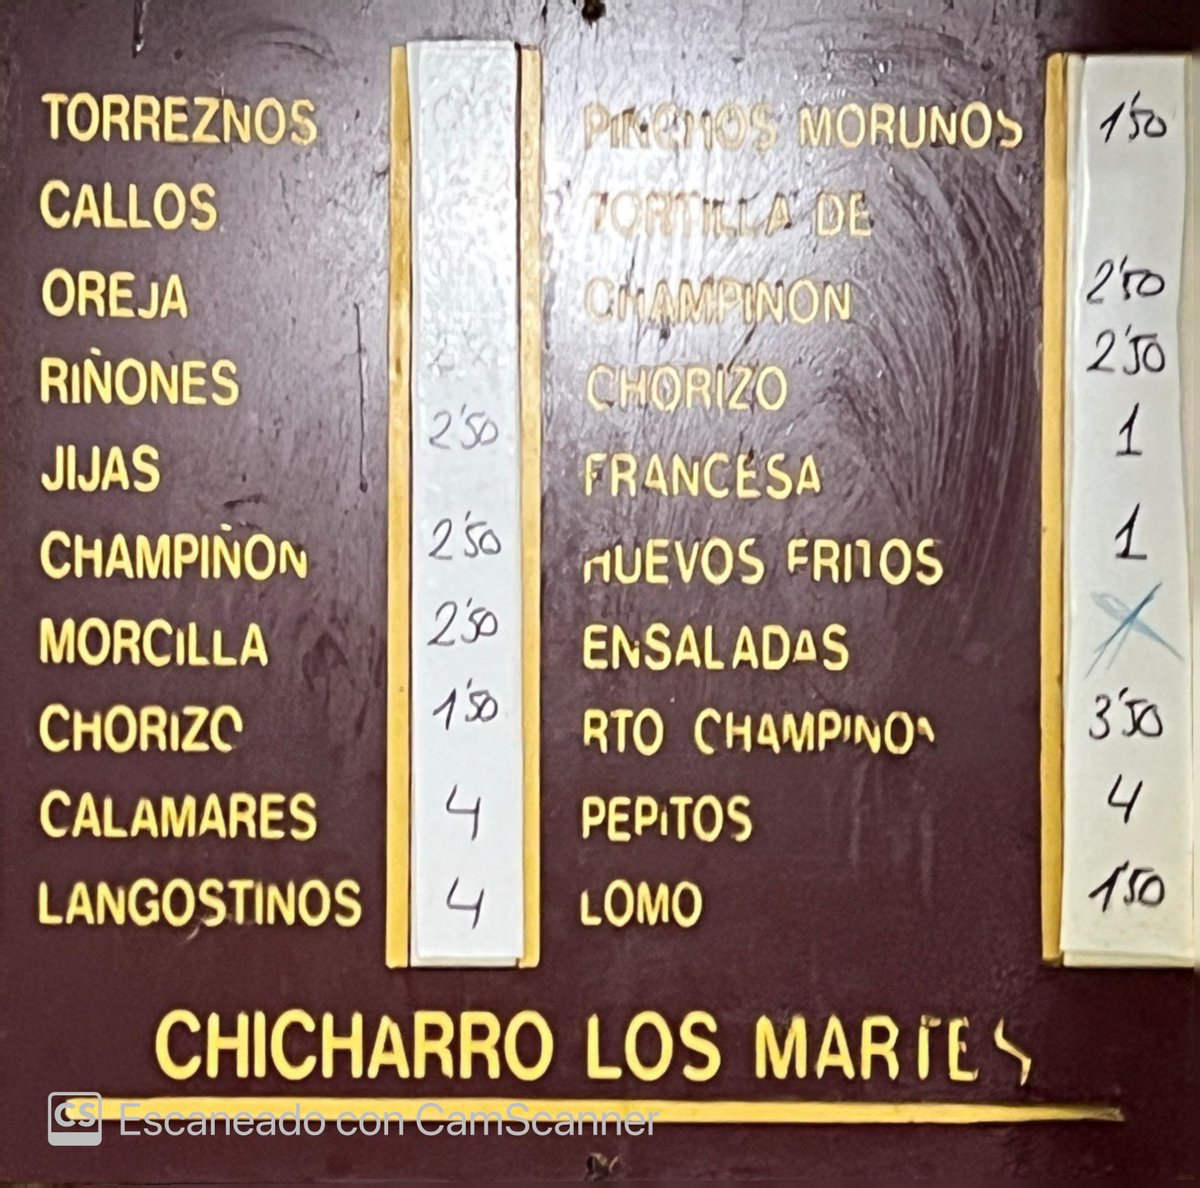 TORREZNOS
CALLOS
OREJA
RIÑONES
JIJAS 2'50
CHAMPIÑON 2'50
MORCILLA 2'50
CHORIZO 1'50
CALAMARES 4
LANGOSTINOS 4
PINCHOS MORUNOS 1'50
TORTILLA DE
CHAMPIÑON 2'50
CHORIZO 2'50
FRANCESA 1
HUEVOS FRITOS 1
ENSALADAS
RTO CHAMPIÑON 3'50
PEPITOS 4
LOMO 1'50
CHICHARRO LOS MARTES
CS Escaneado con CamScanner